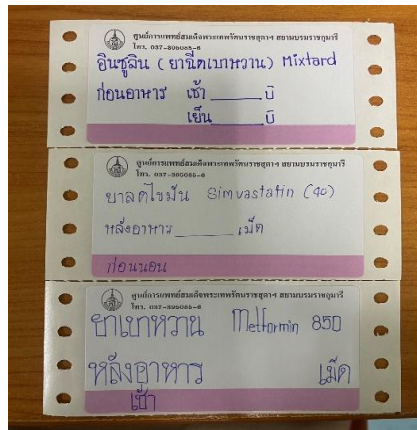 ศูนย์การแพทย์สมเด็จพระเทพรัตนราชสุดาฯ สยามบรมราชกุมารี
โทร. 037-395085-6
อินซูลิน (ยาฉีดเบาหวาน) Mixtard
ก่อนอาหาร เช้า ______ ยู
เย็น ______ ยู
ศูนย์การแพทย์สมเด็จพระเทพรัตนราชสุดาฯ สยามบรมราชกุมารี
โทร. 037-395085-6
ยาลดไขมัน Simvastatin (40)
หลังอาหาร ______ เม็ด
ก่อนนอน
ศูนย์การแพทย์สมเด็จพระเทพรัตนราชสุดาฯ สยามบรมราชกุมารี
โทร. 037-395085-6
ยาเบาหวาน Metformin 850
หลังอาหาร เม็ด
เช้า